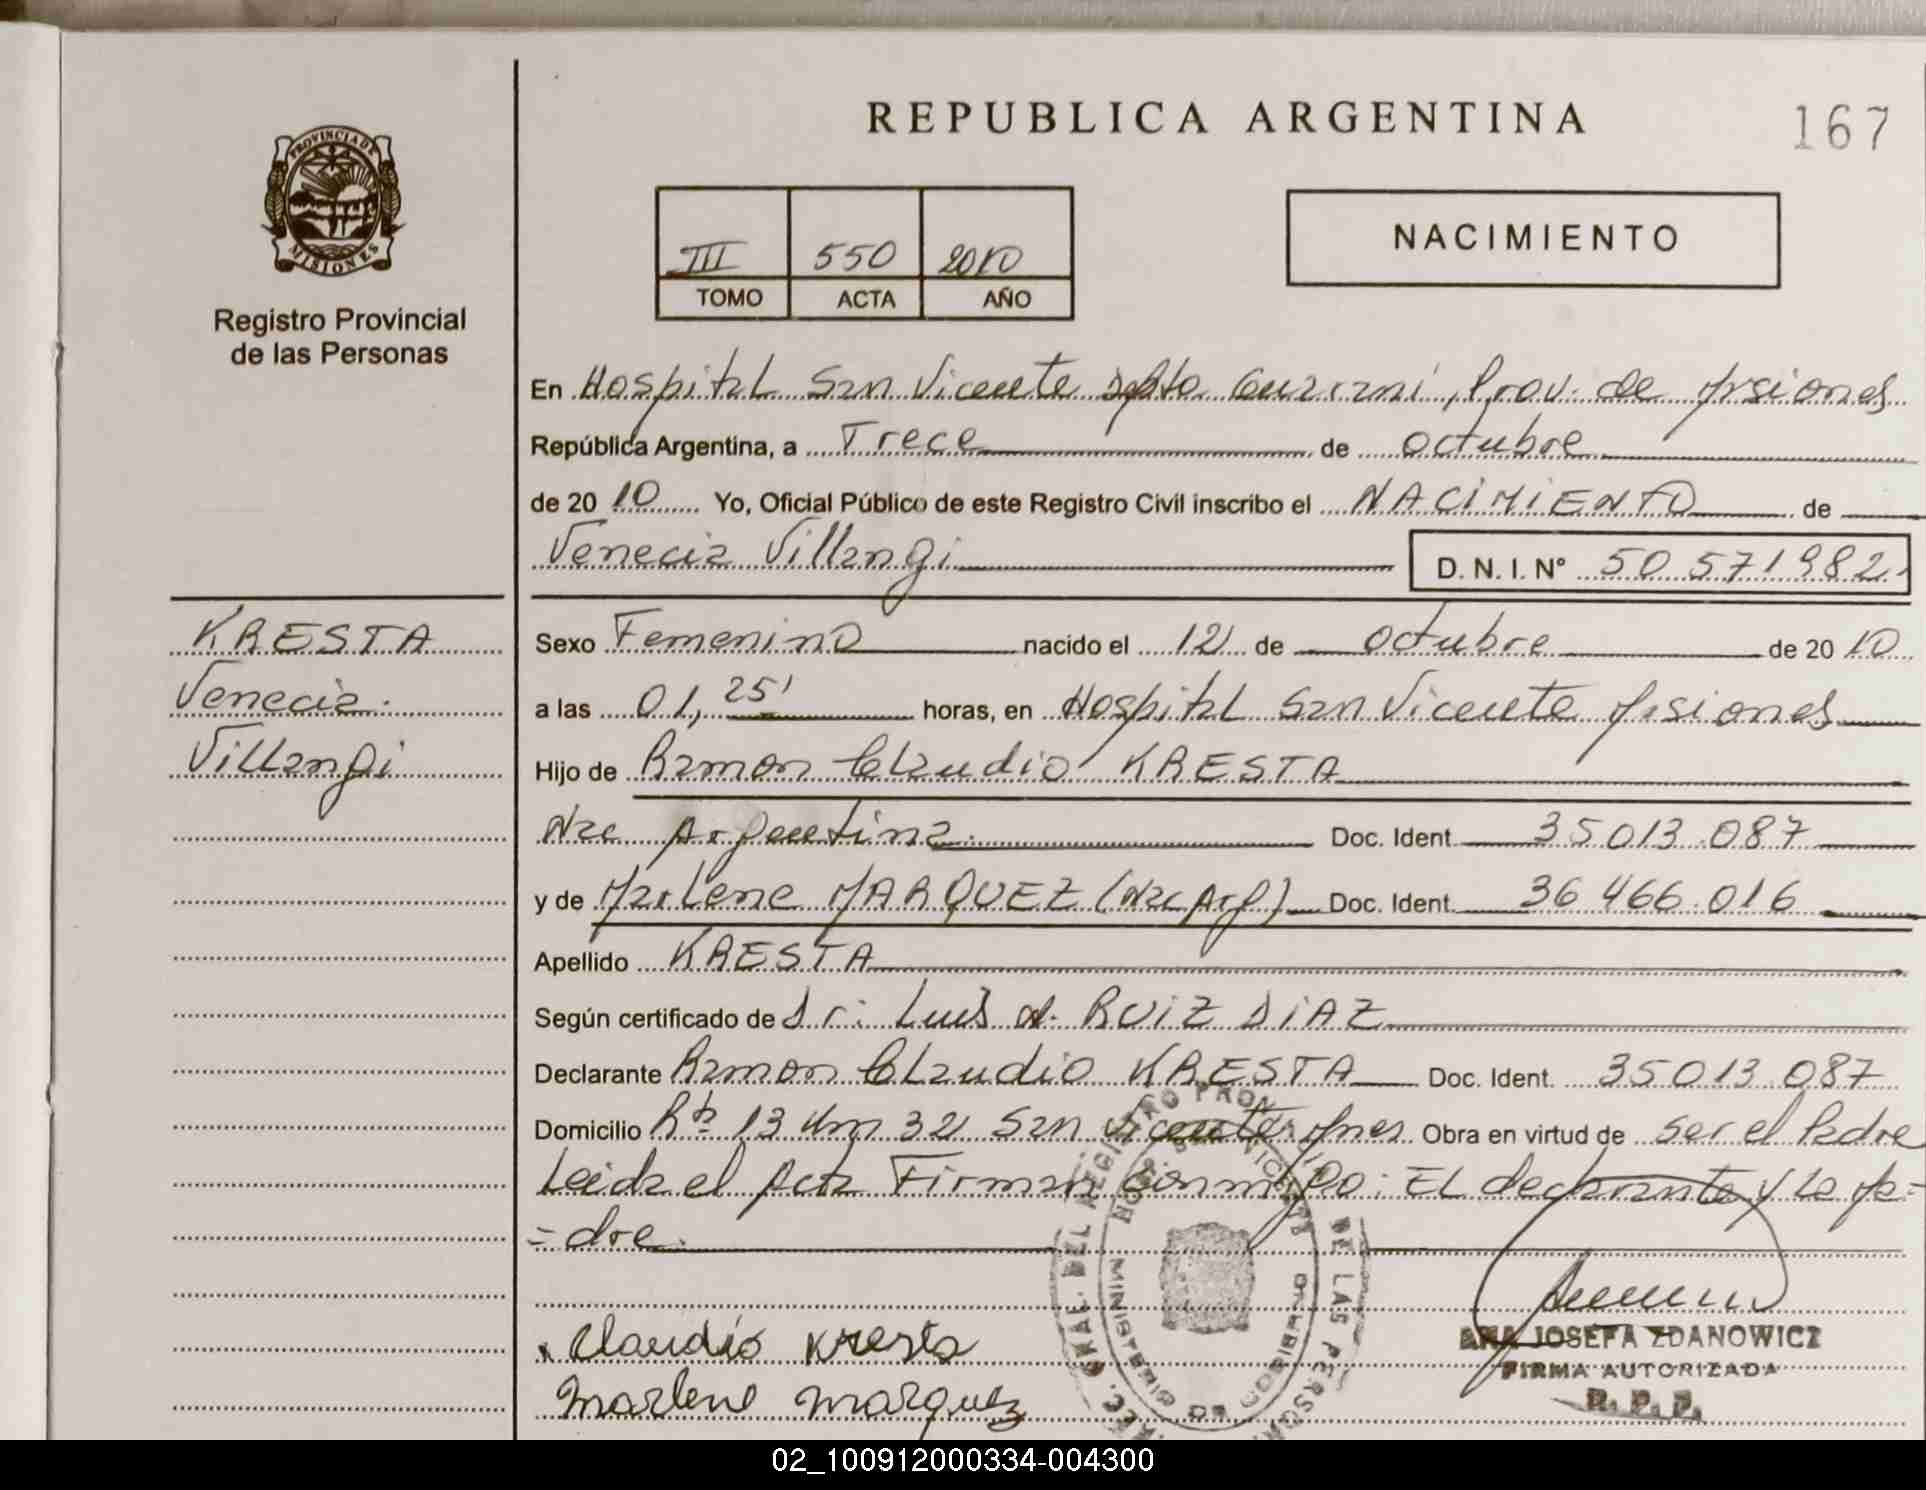 REPUBLICA ARGENTINA
167
PROVINCIA DE
MISIONES
Registro Provincial
de las Personas
III 550 2010
TOMO ACTA AÑO
NACIMIENTO
En Hospital San Vicente Dpto Guarani, Prov. de Misiones
República Argentina, a Trece de octubre
de 2010 Yo, Oficial Público de este Registro Civil inscribo el NACIMIENTO de
Venecia Villangi D. N. I. N° 50 571982
KRESTA
Venecia
Villangi
Sexo Femenino nacido el 12 de octubre de 2010
a las 01, 25' horas, en Hospital San Vicente Misiones
Hijo de Ramon Claudio KRESTA
Nac Argentina Doc. Ident. 35013.087
y de Marlene MARQUEZ (Nac Arg) Doc. Ident. 36 466.016
Apellido KRESTA
Según certificado de Dr: Luis A. RUIZ DIAZ
Declarante Ramon Claudio KRESTA Doc. Ident. 35013.087
Domicilio Rta 13 Km 32 San Vicente Mnes Obra en virtud de ser el Padre
Leida el Acta Firman conmigo: EL declarante y La Ma=
=dre.
Claudio Kresta
Marlene Marquez
ANA JOSEFA ZDANOWICZ
FIRMA AUTORIZADA
R. P. P.
02_100912000334-004300